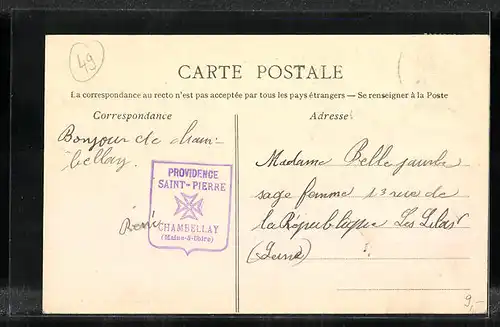 49
CARTE POSTALE
La correspondance au recto n'est pas acceptée par tous les pays étrangers — Se renseigner à la Poste
Correspondance
Adresse
Bonjour de Cham-
bellay
PROVIDENCE
SAINT-PIERRE
CHAMBELLAY
(Maine-&-Loire)
René
Madame Bellejambe
sage femme 13 rue de
la République Les Lilas
(Seine)
9,-